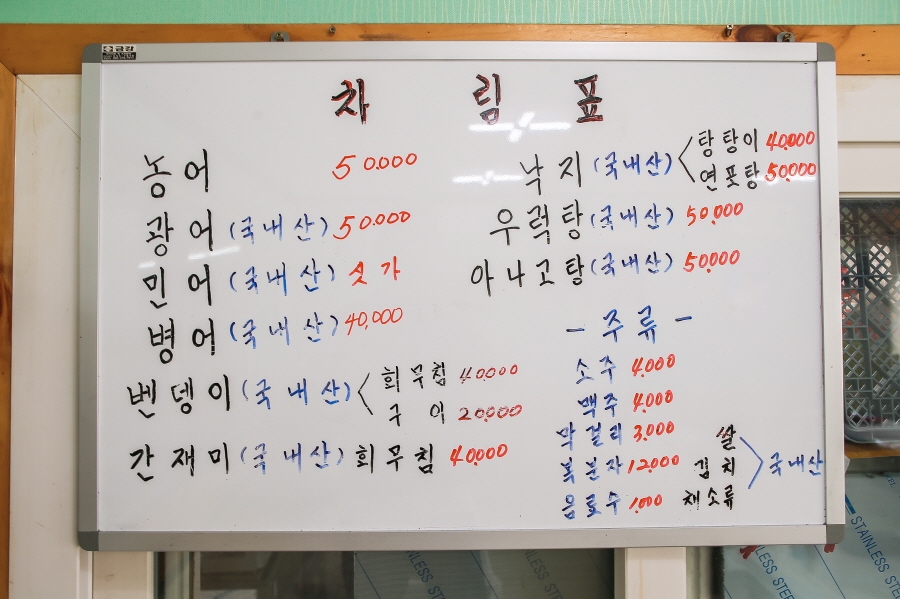 금강
차림표
농어 50.000
광어 (국내산) 50.000
민어 (국내산) 싯가
병어 (국내산) 40,000
벤뎅이 (국내산) 회무침 40.000
구이 20.000
간재미 (국내산) 회무침 40.000
낙지 (국내산) 탕탕이 40.000
연포탕 50.000
우럭탕 (국내산) 50.000
아나고탕 (국내산) 50.000
- 주류 -
소주 4.000
맥주 4.000
막걸리 3.000
복분자 12.000
음료수 1.000
쌀
김치 국내산
채소류
STAINLESS STEEL
STAINLESS STE